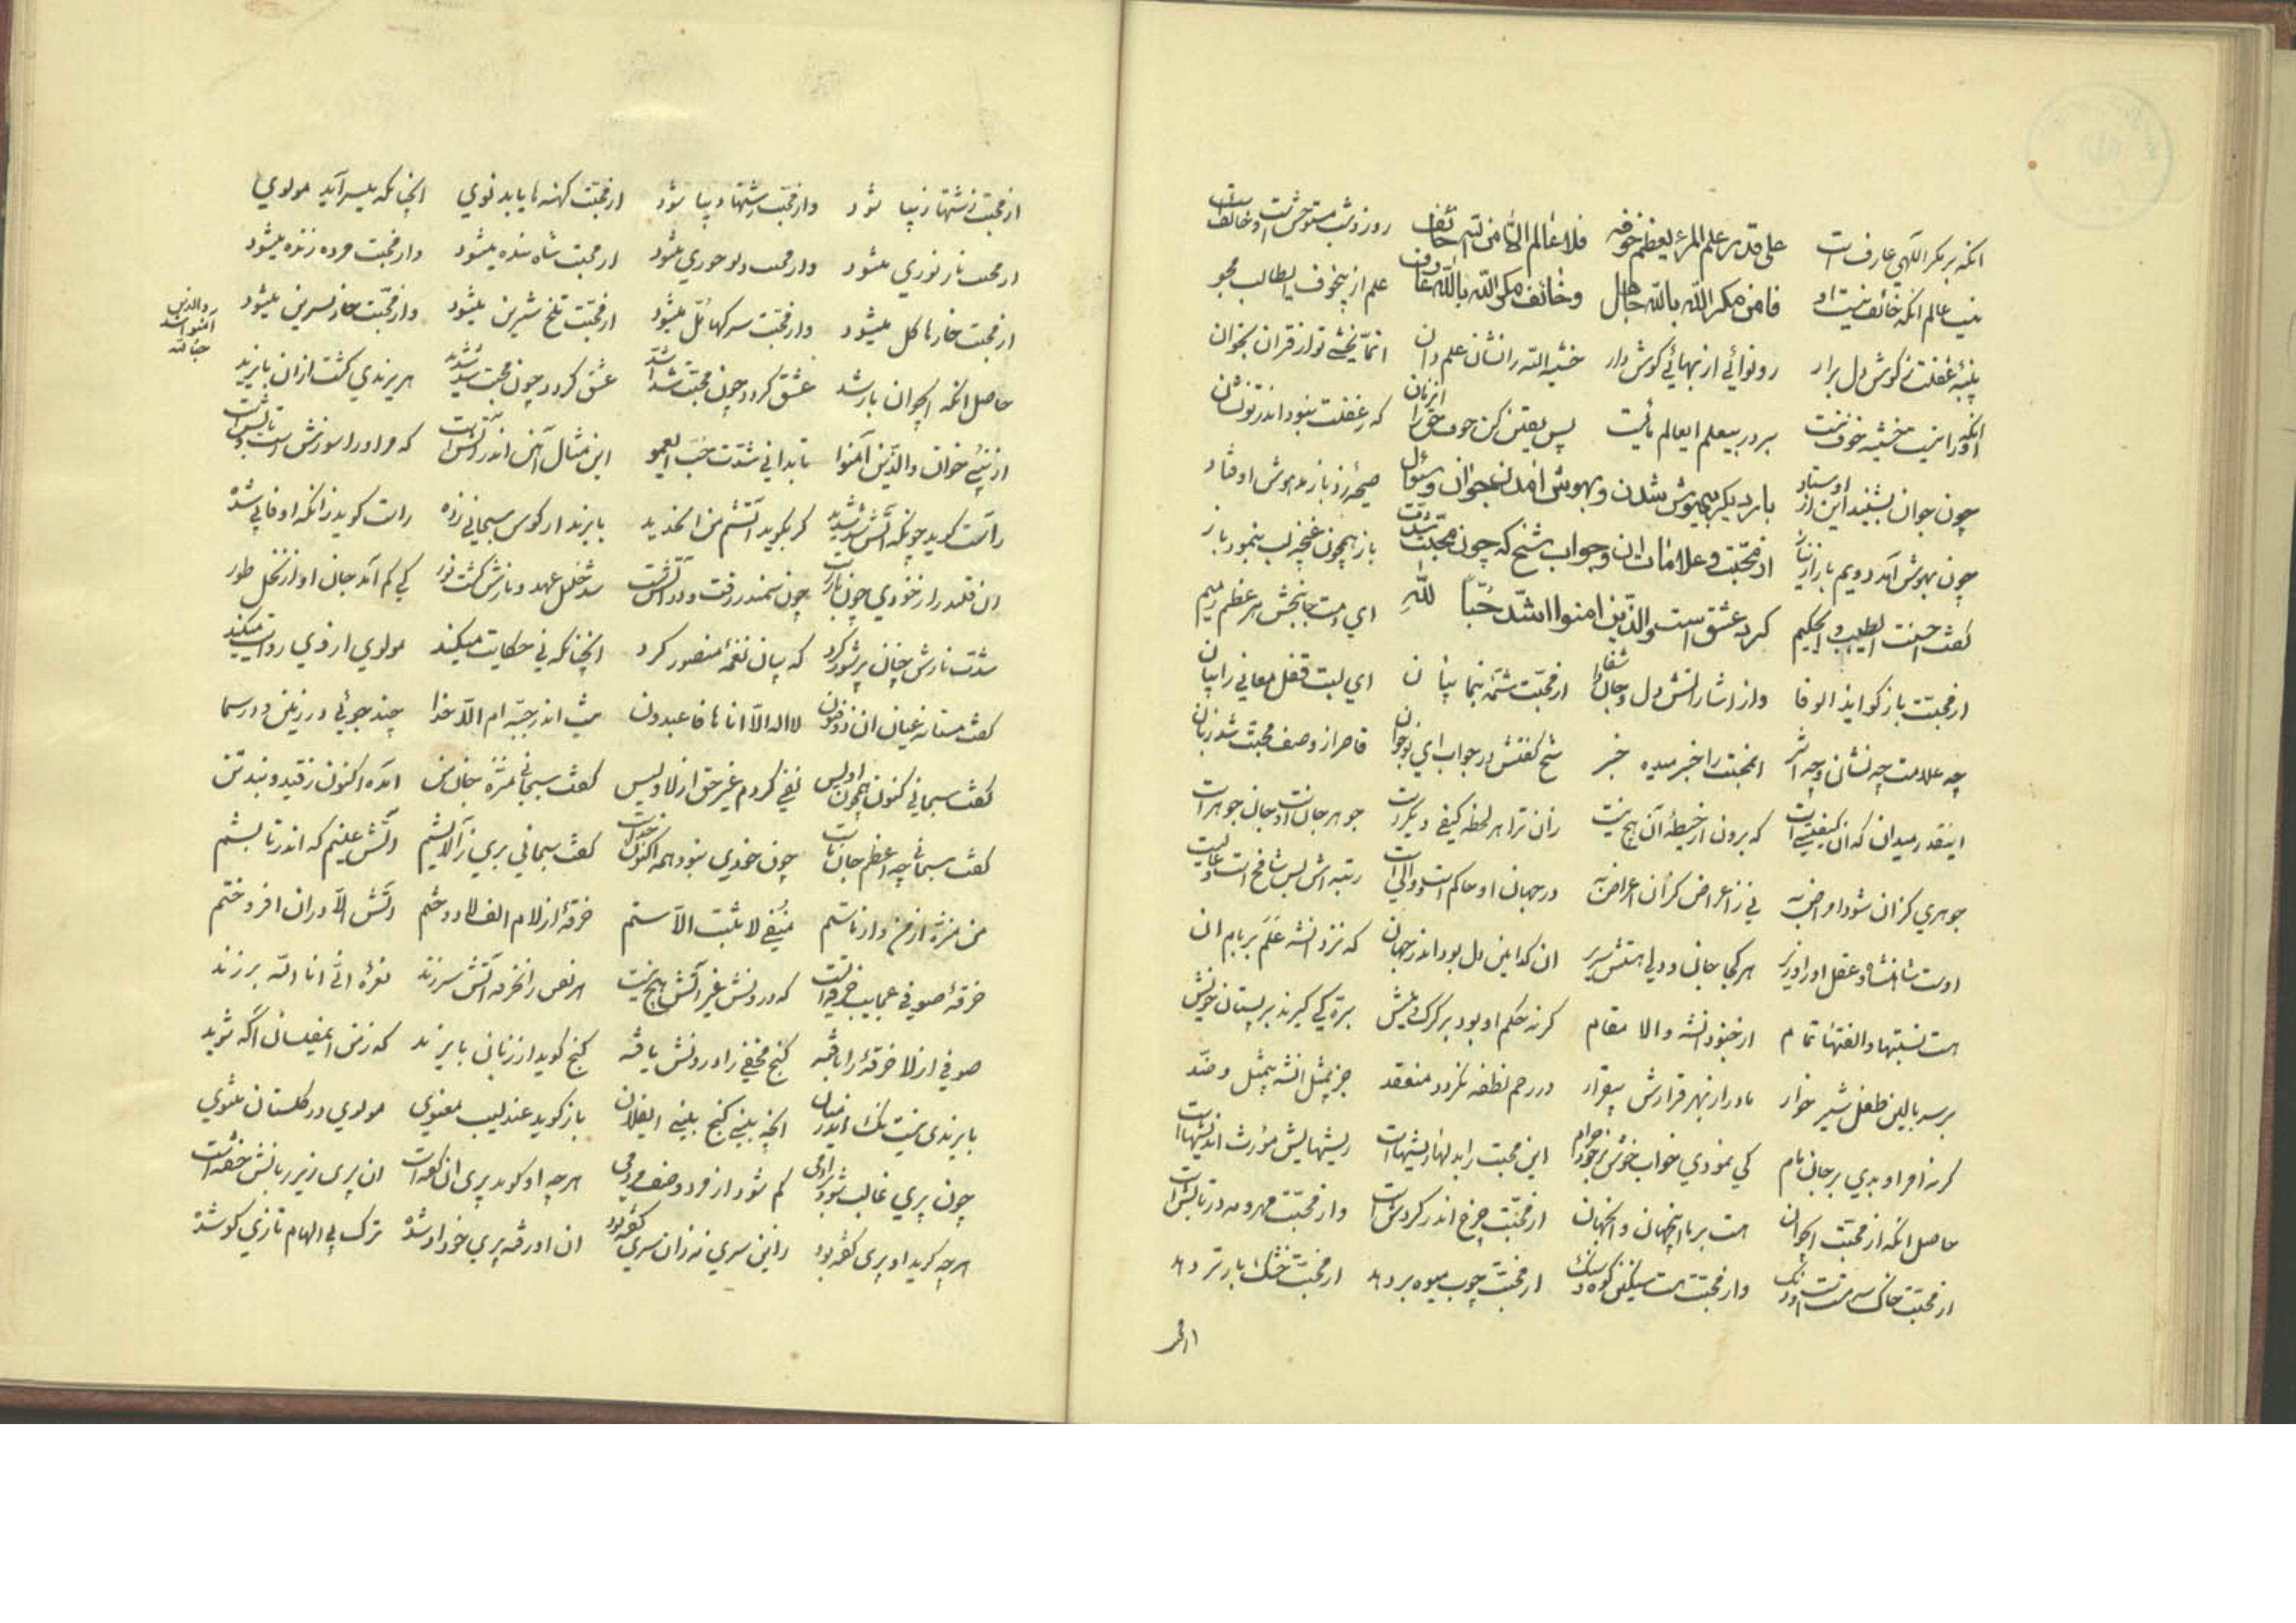 انکه بر مکر الهی عارفست علی قدر علم المرء یعظم خوفه فلا عالم الا من الله خائف روز و شب مستوحش است و خائفست
نیست عالم انکه خائف نیست او فامن مکر الله بالله جاهل وخائف مکر الله بالله عارف علم از بیخوف ایطالب مجو
پنبه غفلت ز کوش دل برار رو نوائی از نهائی کوش دار خشیه الله را نشان علم دان انما یخشی تو از قران بخوان
انکه او را نیست خشیه خوف نیست بی علم ایعالم پس یقین کن خوف حق را که ز غفلت نبود اندر تو نشان
چون جوان بشنید این از اوستاد بار دیکر بیهوش شدن و بهوش امدن جوان وسؤال صیحه زد باز مدهوش اوفتاد
چون بهوش آمد دویم بار از محبت و علامات ان وجواب شیخ که چون محبت شدت باز همچون غنچه لب بنمود باز
کفت احسنت ای طبیب و ای حکیم کرد عشق است والذین امنوا اشد حبا لله ای دمت جانبخش بر عظم رمیم
از محبت باز کو ایذ الوفا واز اشاراتش دل و جان را شفا از محبت شمه بنما بیان ای لبت قفل معانی را بیان
چه علامت چه نشان و چه اثر از محبت را خبر میده خبر شیخ کفتش در جواب ای نوجوان قاصر از وصف محبت شد زبان
اینقدر میدان که ان کیفیتی است که برون از حیطه آن هیچ نیست زان ترا هر لحظه کیفی دیکرست جوهر جان است و جان جوهر است
جوهری کز ان شود اعراض به نی ز اعراض کز آن اعراض به در جهان او حاکم است و والی است رتبه اش بس شامخ است و عالیست
اوست شاهنشاه و عقل او را وزیر هر کجا جانی و دلی هستش سریر ان کدامین دل بود اندر جهان که نزد انشه علم بر بام ان
هست نسبتها و الفتها تمام از جنود انشه والا مقام کرنه حکم او بود بر کرک و میش بره کی کیرند بر پستان خویش
بر سر بالین طفل شیر خوار مادر از بهر قرارش بیقرار در رحم نطفه نکردد منعقد جز بمثل انشه بیمثل و ضد
کرنه امر او بدی بر جان مام کی نمودی خواب خوش بر خود حرام این محبت را بدلها ریشهاست ریشهایش مورث اندیشهاست
حاصل انکه از محبت ایجوان هست بر پا اینجهان و انجهان از محبت چرخ اندر کردش است وز محبت مهر و مه در تابش است
از محبت خاک وز محبت هست سنکینی کوه و سنک از محبت چوب میوه بر دهد از محبت خشک بار تر دهد
از محبت
از محبت زشتها زیبا شود وز محبت شود از محبت کهنه ها یابد نوی انچنانکه میسراید مولوی
از محبت نار نوری میشود وز محبت دیو حوری میشود از محبت شاه بنده میشود وز محبت مرده زنده میشود
از محبت خارها کل میشود وز محبت سرکها مل میشود از محبت تلخ شیرین میشود وز محبت خار نسرین میشود
والذین آمنوا اشد حبا لله
حاصل انکه ایجوان عشق کردد چون محبت شد اشد عشق کردد چون محبت شد شدید هر یزیدی کشت از ان بایزید
از نبی خوان والذین آمنوا تا بدانی شدت حب ای عمو این مثال آهن اندر آتش است که مر او را سوزش است و تابش است
راست کوید چونکه آتش شد شدید کر بکوید آتشم من الحدید بایزید ار کوس سبحانی زده راست کوید زانکه او فانی شده
ان قلندر از خودی چون چون سمندر رفت و در آتش نشست شد خلیل عهد و نارش کشت نور کی کم آمد جان او از نخل طور
شدت نارش چنان پر شور کرد که بیان نغمه منصور کرد انچنانکه نی حکایت میکند مولوی از وی روایت میکند
کفت مستانه عیان ان ذوفنون لا اله الا انا ها فاعبدون نیست اندر جبه ام الا خدا چند جوئی در زمین و در سما
کفت سبحانی کنون همچون اویس نفی کردم غیر حق از لا و لیس کفت سبحانی منزه جان من امده اکنون ز قید و بند تن
کفت سبحانی چه اعظم چون خودی نبود همه اکنون خداست کفت سبحانی بری ز آلایشم آتش عشقم که اندر تابشم
من منزه از من و از ما ستم منفی لا مثبت الا ستم خرقه از لام الف لا دوختم آتش الا در ان افروختم
خرقه صوفی عجایب خرقه است که درونش غیر آتش هیچ نیست هر نفس زانخرقه آتش سرزند نعره انی انا الله برزند
صوفی از لا خرقه را بافته کنج مخفی را درونش یافته کنج کوید از زبان بایزید که ز من ایمفلسان آکه شوید
بایزیدی نیست نک اندر میان انچه بینی کنج بینی ایفلان باز کوید عندلیب معنوی مولوی در کلستان مثنوی
چون پری غالب شود بر ادمی کم شود از مرد وصف مردمی هر چه او کوید پری ان کفته است ان پری زیر زبانش خفته است
هر چه کوید او پری کفته بود زاین سری نه زان سری کفته بود ان او رفته پری خود او شده ترک بی الهام تازی کو شده